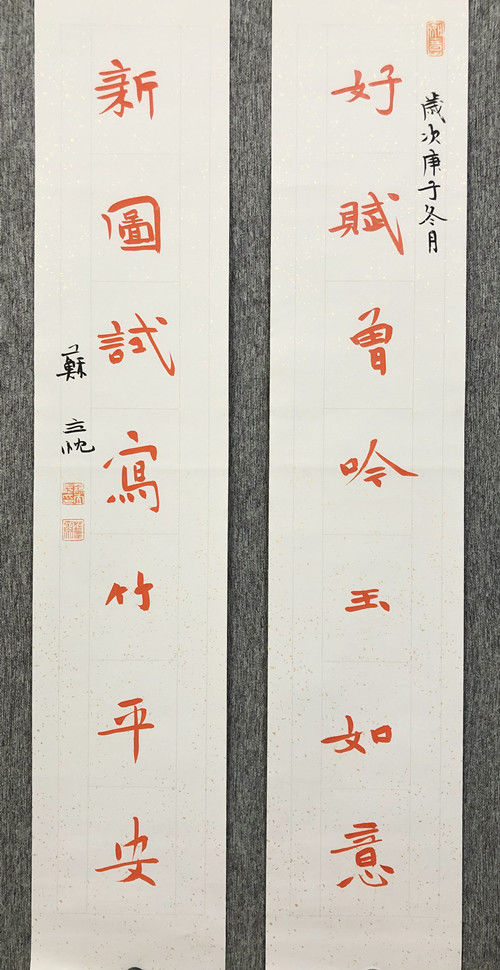 歲次庚子冬月
好賦曾吟玉如意
新圖試寫竹平安
蘇立忱